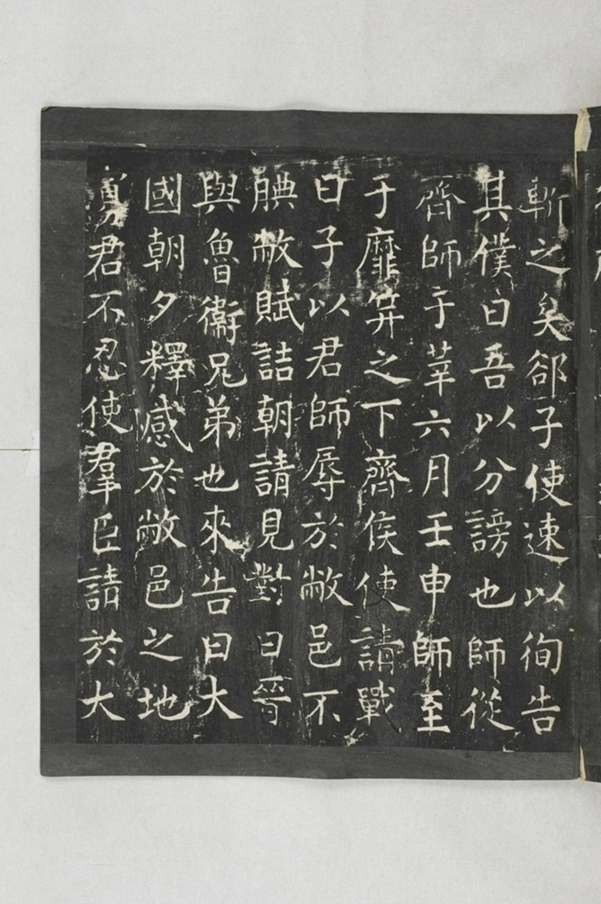 斬之矣郤子使速以徇告
其僕曰吾以分謗也師從
齊師于莘六月壬申師至
于靡笄之下齊侯使請戰
曰子以君師辱於敝邑不
腆敝賦詰朝請見對曰晉
與魯衛兄弟也來告曰大
國朝夕釋感於敝邑之地
寡君不忍使羣臣請於大